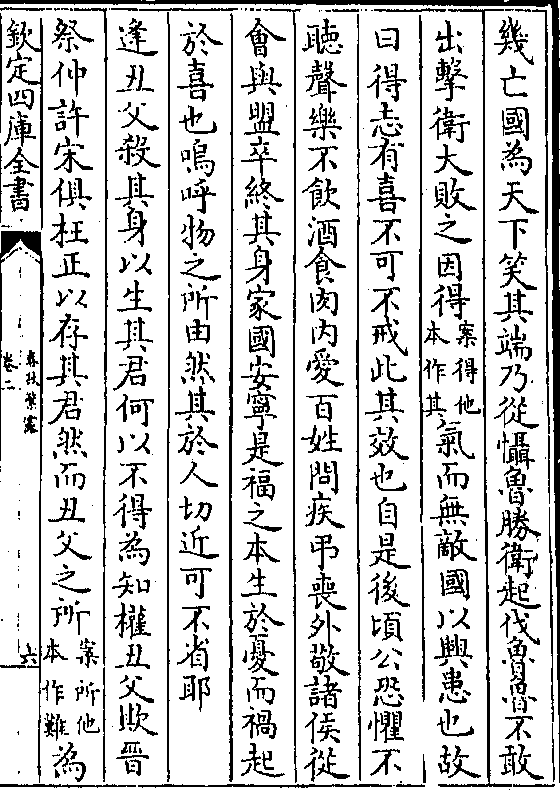 幾亡國為天下笑其端乃從懾魯勝衛起伐魯魯不敢
出擊衛大敗之因得案得他本作其氣而無敵國以興患也故
曰得志有喜不可不戒此其效也自是後頃公恐懼不
聽聲樂不飲酒食肉内愛百姓問疾弔喪外敬諸侯從
會與盟卒終其身家國安寧是福之本生於憂而禍起
於喜也嗚呼物之所由然其於人切近可不省耶
逢丑父殺其身以生其君何以不得為知權丑父欺晉
祭仲許宋俱枉正以存其君然而丑父之所案所他本作難為
欽定四庫全書
春秋繁露
卷二
六